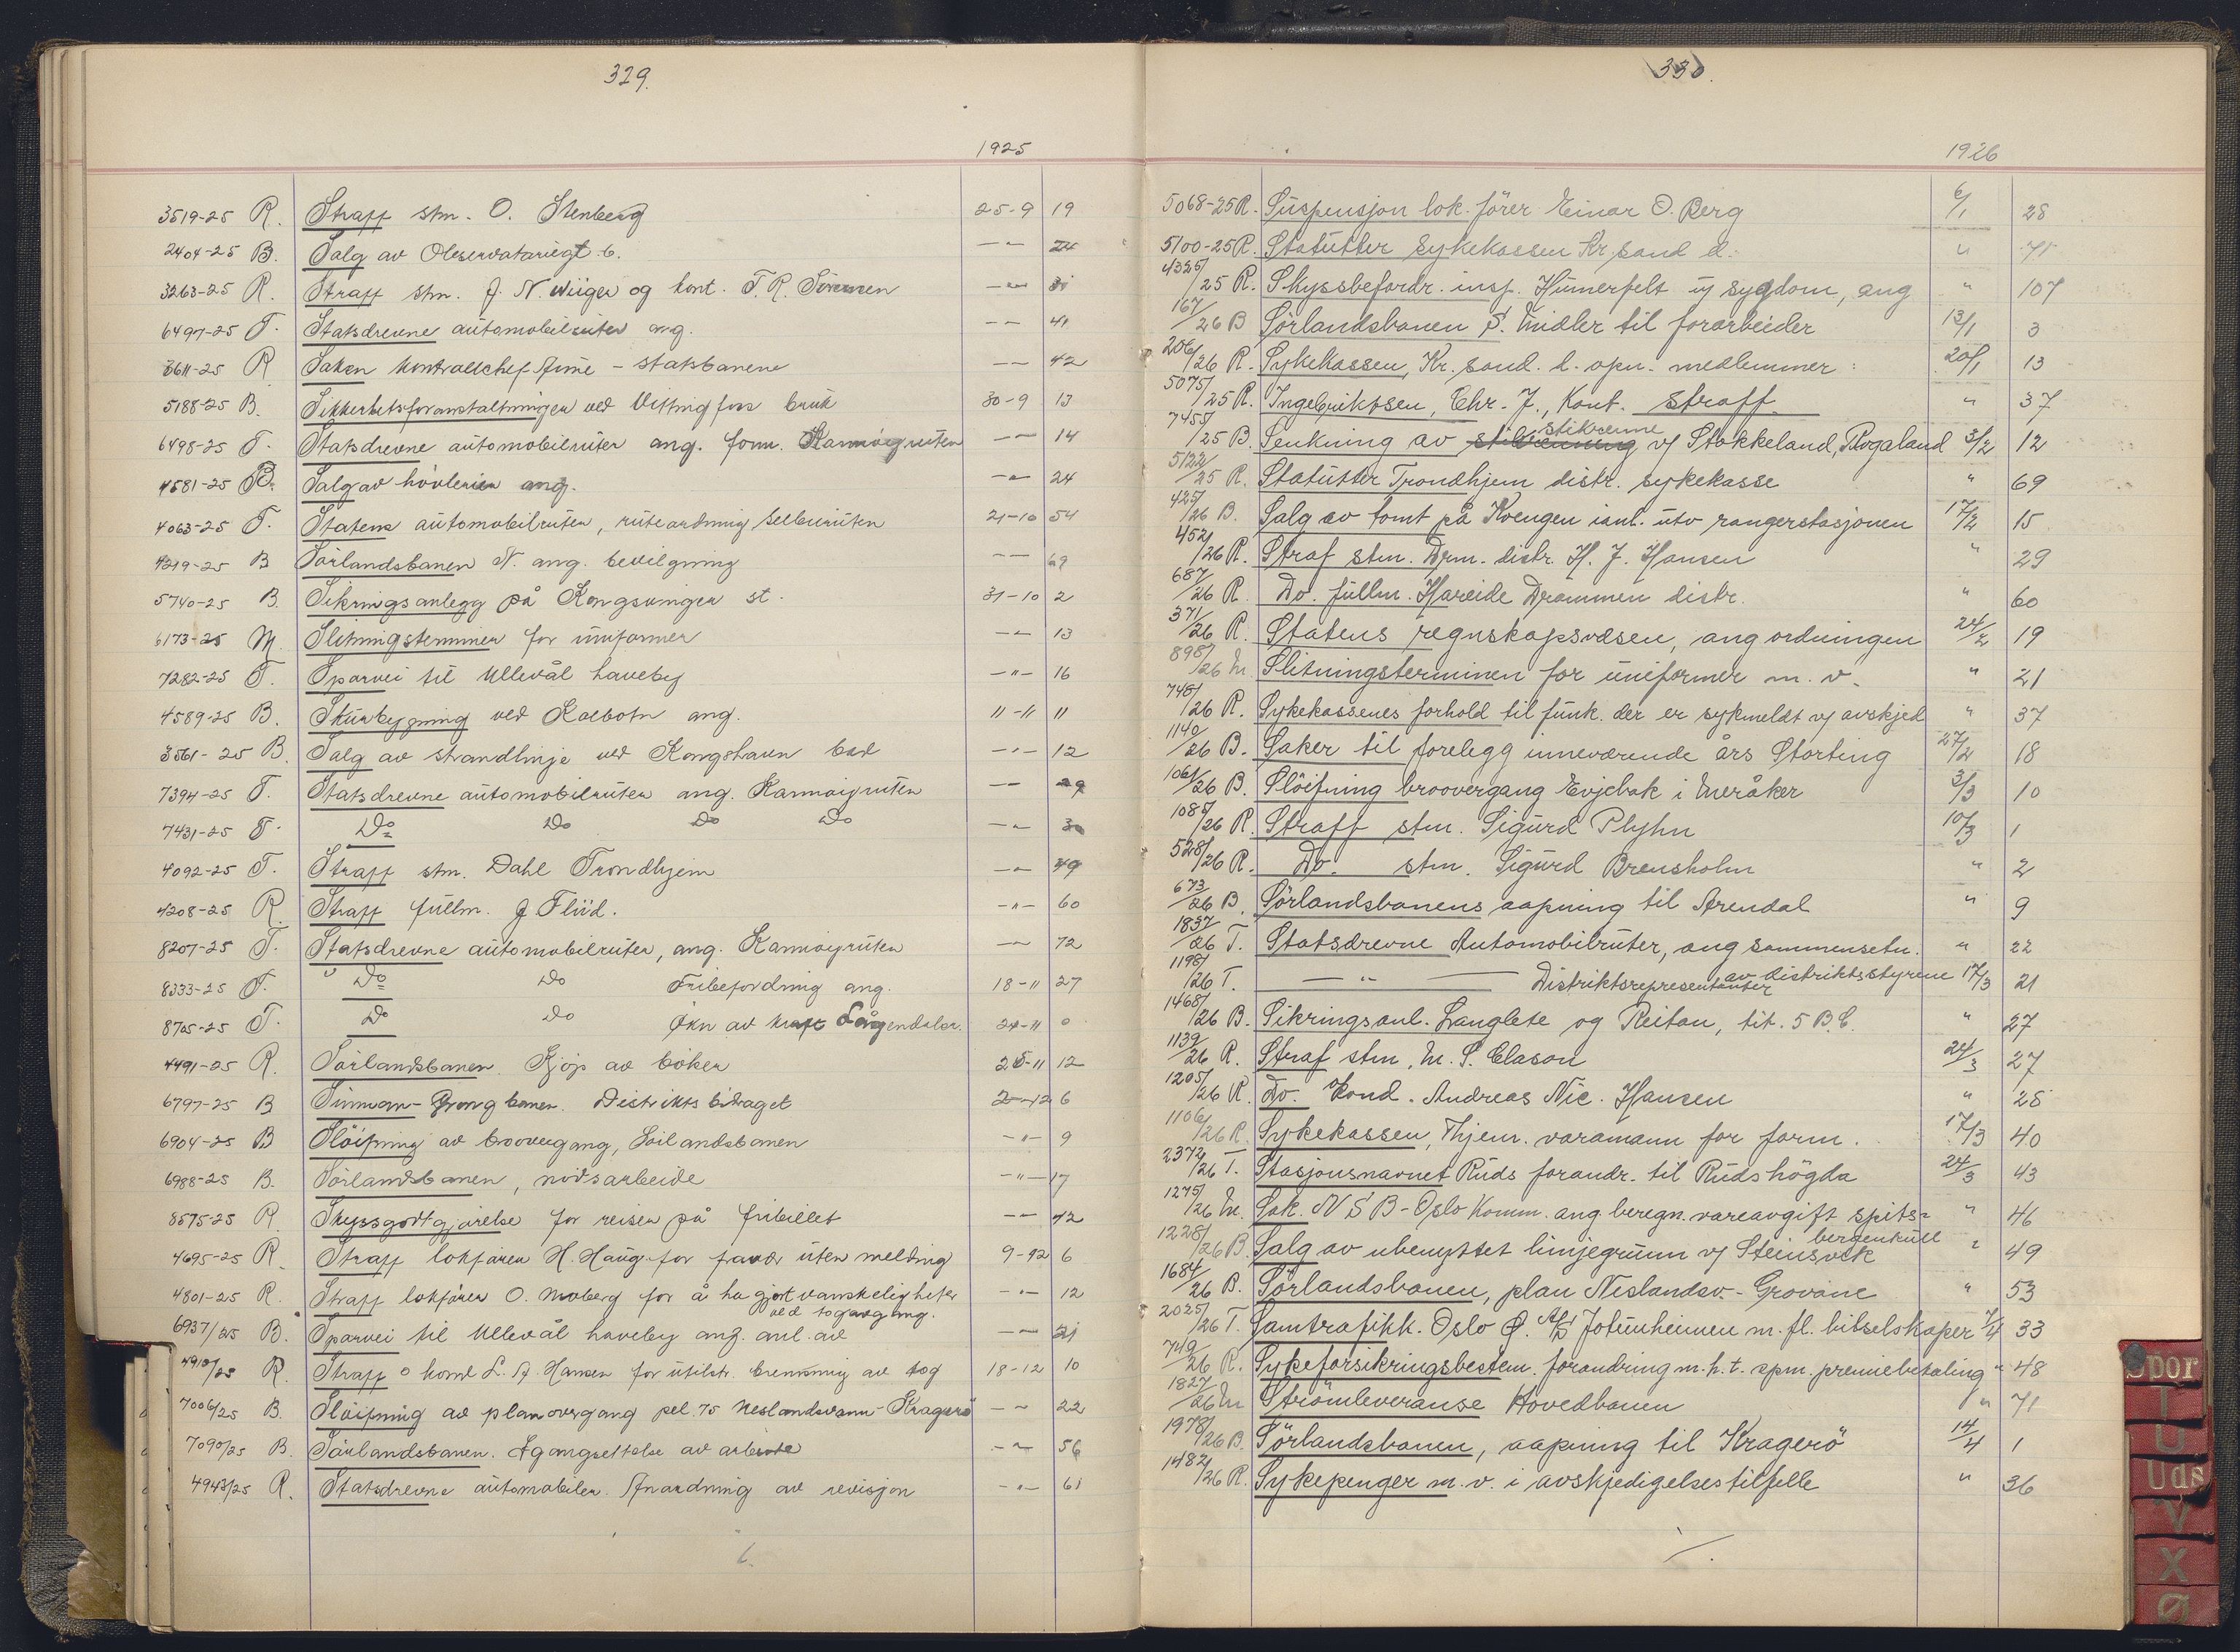 329.
1925
3519-25 R. Straff stm. O. Stenberg 25-9 19
2404-25 B. Salg av Observatoriegt. 6. -"- 24
3263-25 R. Straff stm. J. N. Wiiger og kont. T. R. Sörensen -"- 31
6497-25 T. Statsdrevne automobilruter ang. -"- 41
3611-25 R Saken kontrollchef Aune - statsbanene -"- 42
5188-25 B. Sikkerhetsforanstaltninger ved Vittingfoss bruk 30-9 13
6498-25 T. Statsdrevne automobilruter ang. form. Karmöyruten -"- 14
4581-25 B. Salg av hövlerier ang. -"- 24
4063-25 T. Statens automobilruter, ruteordning Selburuten 21-10 54
4219-25 B Sörlandsbanen N. ang. bevilgning -"- 69
5740-25 B. Sikringsanlegg på Kongsvinger st. 31-10 2
6173-25 M. Slitningsterminer for uniformer -"- 13
7282-25 T. Sporvei til Ullevål haveby -"- 16
4589-25 B. Skurbygning ved Kolbotn ang. 11-11 11
3561-25 B. Salg av strandlinje ved Kongshavn bad -"- 12
7394-25 T. Statsdrevne automobilruter ang. Karmöyruten -"- 29
7431-25 T. Do Do Do Do -"- 30
4092-25 T. Straff stm. Dahl Trondhjem -"- 49
4208-25 R. Straff fullm. J. Flüd. -"- 60
8207-25 T. Statsdrevne automobilruter, ang. Karmöyruten -"- 72
8333-25 T. Do Do Fribefordring ang. 18-11 27
8705-25 T. Do Do Økn av Lågendalsr. 24-11 0
4491-25 R. Sörlandsbanen. Kjöp av böker 25-11 12
6797-25 B Sunnan-Grongbanen. Distriktsbidraget 2-12 6
6904-25 B Slöifning av broovergang, Soilandsbanen -"- 9
6988-25 B. Sörlandsbanen, nödsarbeide -"- 17
8575-25 R. Skyssgodtgjörelse for reiser på fribillet -"- 42
4695-25 R. Straff lokförer H. Haug for fravær uten melding 9-12 6
4801-25 R. Straff lokförer O. Moberg for å ha gjort vanskeligheter -"- 12
ved togavgang.
6937/25 B. Sporvei til Ullevål haveby ang. anl. av -"- 21
4910/25 R. Straff o kond L. A. Hansen for utilstr. bremsning av tog 18-12 10
7006/25 B. Slöifning av planovergang pel. 75 Neslandsvann-Kragerö -"- 22
7090/25 B. Sörlandsbanen. Igangsettelse av arbeide -"- 56
4943/25 R. Statsdrevne automobiler. Anordning av revisjon -"- 61
6.
330.
1926
5068-25 R. Suspensjon lok. förer Einar O. Berg 6/1 28
5100-25 R. Statutter Sykekassen Kr.sand d. " 71
4325/25 R. Skyssbefordr. insp. Hunerfelt v/ sygdom, ang " 107
167/26 B Sörlandsbanen S. Midler til forarbeider 13/1 3
206/26 R. Sykekassen, Kr. sand. d. opn. medlemmer 20/1 13
5075/25 R. Ingebriktsen, Chr. J., Kont. straff. " 37
stikrenne
7455/25 B. Senkning av stikrenning v/ Stokkeland, Rogaland 3/2 12
5122/25 R. Statutter Trondhjem distr. sykekasse " 69
425/26 B. Salg av tomt på Kvengen ianl. utv rangerstasjonen 17/2 15
452/26 R. Straf stm. Drm. distr. H. J. Hansen " 29
687/26 R. Do. fullm. Hareide Drammen distr. " 60
371/26 R. Statens regnskapsvæsen, ang ordningen 24/2 19
898/26 M. Slitningsterminen for uniformer m. v. " 21
748/26 R. Sykekassenes forhold til funk. der er sykmeldt v/ avskjed " 37
1140/26 B. Saker til forelegg inneværende års Storting 27/2 18
1061/26 B. Slöifning broovergang Evjebak i Meråker 3/3 10
1085/26 R. Straff stm. Sigurd Plyhn 10/3 1
528/26 R. Do. stm. Sigurd Brensholm " 2
673/26 B. Sörlandsbanens aapning til Arendal " 9
1837/26 T. Statsdrevne Automobilruter, ang sammensetn. " 22
av distriktsstyrene
1198/26 T. —"— Distriktsrepresentanter 17/3 21
1468/26 B. Sikringsanl. Langlete og Reitan, tit. 5 B.C. " 27
1139/26 R. Straf stm. M. S. Clason 24/3 27
1205/26 R. Do. Kond. Andreas Nic. Hansen " 28
1106/26 R. Sykekassen, Thjem. varamann for form. 17/3 40
2372/26 T. Stasjonsnavnet Ruds forandr. til Rudshögda 24/3 43
1275/26 M. Sak. NSB-Oslo Komm. ang. beregn. vareavgift spits- " 46
bergenkull
1228/26 B. Salg av ubenyttet linjegrunn v/ Steinsvik " 49
1684/26 B. Sörlandsbanen, plan Neslandsv.-Grovane " 53
2025/26 T. Samtrafikk. Oslo Ø. A/S Jotunheimen m. fl. bilselskaper 7/4 33
749/26 R. Sykeforsikringsbestem. forandring m. h. t. spm. premiebetaling " 48
1827/26 M Strömleveranse Hovedbanen " 71
1978/26 B. Sörlandsbanen, aapning til Kragerö 14/4 1
1482/26 R. Sykepenger m. v. i avskjedigelsestilfelle " 36
Spor
T
U
Uds
V
X
Ø